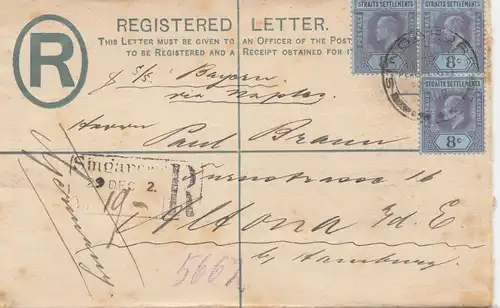 REGISTERED LETTER.
THIS LETTER MUST BE GIVEN TO AN OFFICER OF THE POST
TO BE REGISTERED AND A RECEIPT OBTAINED FOR IT
R
STRAITS SETTLEMENTS
8c
STRAITS SETTLEMENTS
8c
p. s/s. Bayern
via Naples
Herrn Paul Braun
Singapore
DEC 2
R
19
Turnstrasse 16
Altona a/d. E
by Hamburg.
Germany.